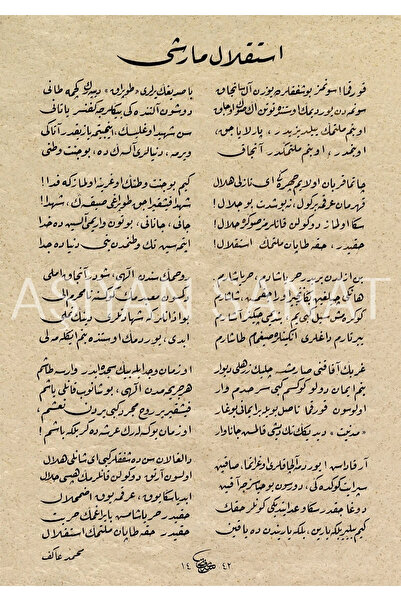 استقلال مارشى
قورقما! سونمز بو شفقلرده يوزن آل سنجاق
سونمه‌دن يورديمك اوستنده توتن اك صوك اوجاق
او بنم ملتمك ييلديزيدر، پارلاياجق،
او بنمدر، او بنم ملتمكدر آنجاق
چاتما قربان اولايم چهره‌كى اى نازلى هلال
قهرمان عرقمه بر گول، نه بو شدت بو جلال!
سكا اولماز دوكولن قانلرمز صوكره حلال!
حقيدر، حقه طاپان ملتمك استقلال!
بن ازلدن بريدر حر ياشادم، حر ياشارم
هانگى چيلغين بكا زنجير اوراجقمش، شاشارم
كوكره‌مش سيل كبى‌يم، بندمى چيكنر، آشارم
ييرتارم داغلرى، انگينلره صيغمام طاشارم
غربك آفاقنى صارمشسه چليك زرهلى ديوار
بنم ايمان دولو گوكسم كبى سرحدم وار
اولوسون قورقما ناصل بويله بر ايمانى بوغار
«مدنيت» ديديكك تك ديشى قالمش جاناوار
آرقاداش! يورديمه آلچاقلرى اوغراتما، صاقين
سپر ايت گوكده‌كى، دورسون بو حياسزجه آقين
دوغاجقدر سكا وعد ايتديكى گونلر حقك
كيم بيلير بلكه يارين، بلكه ياريندن ده ياقين
باصديغك يرلرى «طوپراق» دييه‌رك گچمه طانى
دوشون آلتنده كى بيكلرجه كفنسز ياتانى
سن شهيد اوغليسك، اينجيتمه يازيقدر آتاكى
ويرمه، دنيالرى آلسه‌ك ده، بو جنت وطنى
كيم بو جنت وطنك اوغرينه اولماز كه فدا!
شهدا فشقيراجق طوپراغى صيقسه‌ك، شهدا!
جانى، جانانى، بوتون واريمى آلسين ده خدا
ايتمه‌سين تك وطنمدن بنى دنياده جدا
روحمك سندن الهى، شودر آنجاق املى
دگمه‌سين معبديمك گوكسنه نامحرم الى
بو اذانلر كه شهادتلرى دينك تملى
ابدى، يورديمك اوستنده بنم ايكله‌ملى
او زمان وجد ايله بيك سجده ايدر وارسه طاشم
هر جريحه‌مدن الهى، بوشانوب قانلى ياشم
فيشقيرير روح مجرد كبى يردن نعشم،
او زمان يوكسله‌رك عرشه ده گر بلكه باشم!
دالغالان سن ده شفقلر كبى اى شانلى هلال
اولسون آرتق دوكولن قانلرمك هپسى حلال
ابدياً سكا يوق، عرقمه يوق اضمحلال
حقيدر حر ياشامش بايراغمك حريت
حقيدر حقه طاپان ملتمك استقلال
محمد عاكف
١٤ ٤٢
AŞİYAN SANAT